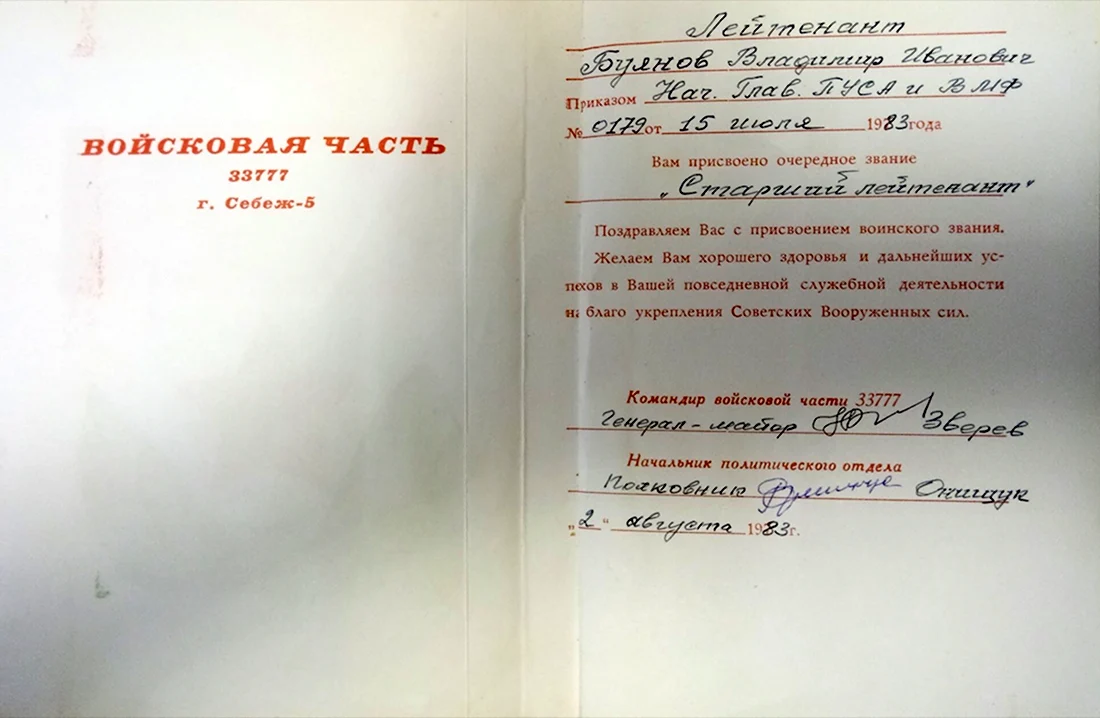 ВОЙСКОВАЯ ЧАСТЬ
33777
г. Себеж-5
Лейтенант
Буянов Владимир Иванович
Приказом Нач. Глав. ПУСА и ВМФ
№ 0179 от 15 июля 1983 года
Вам присвоено очередное звание
„Старший лейтенант"
Поздравляем Вас с присвоением воинского звания.
Желаем Вам хорошего здоровья и дальнейших ус-
пехов в Вашей повседневной служебной деятельности
на благо укрепления Советских Вооруженных сил.
Командир войсковой части 33777
Генерал-майор Зверев
Начальник политического отдела
Полковник Онищук
„2" августа 1983г.